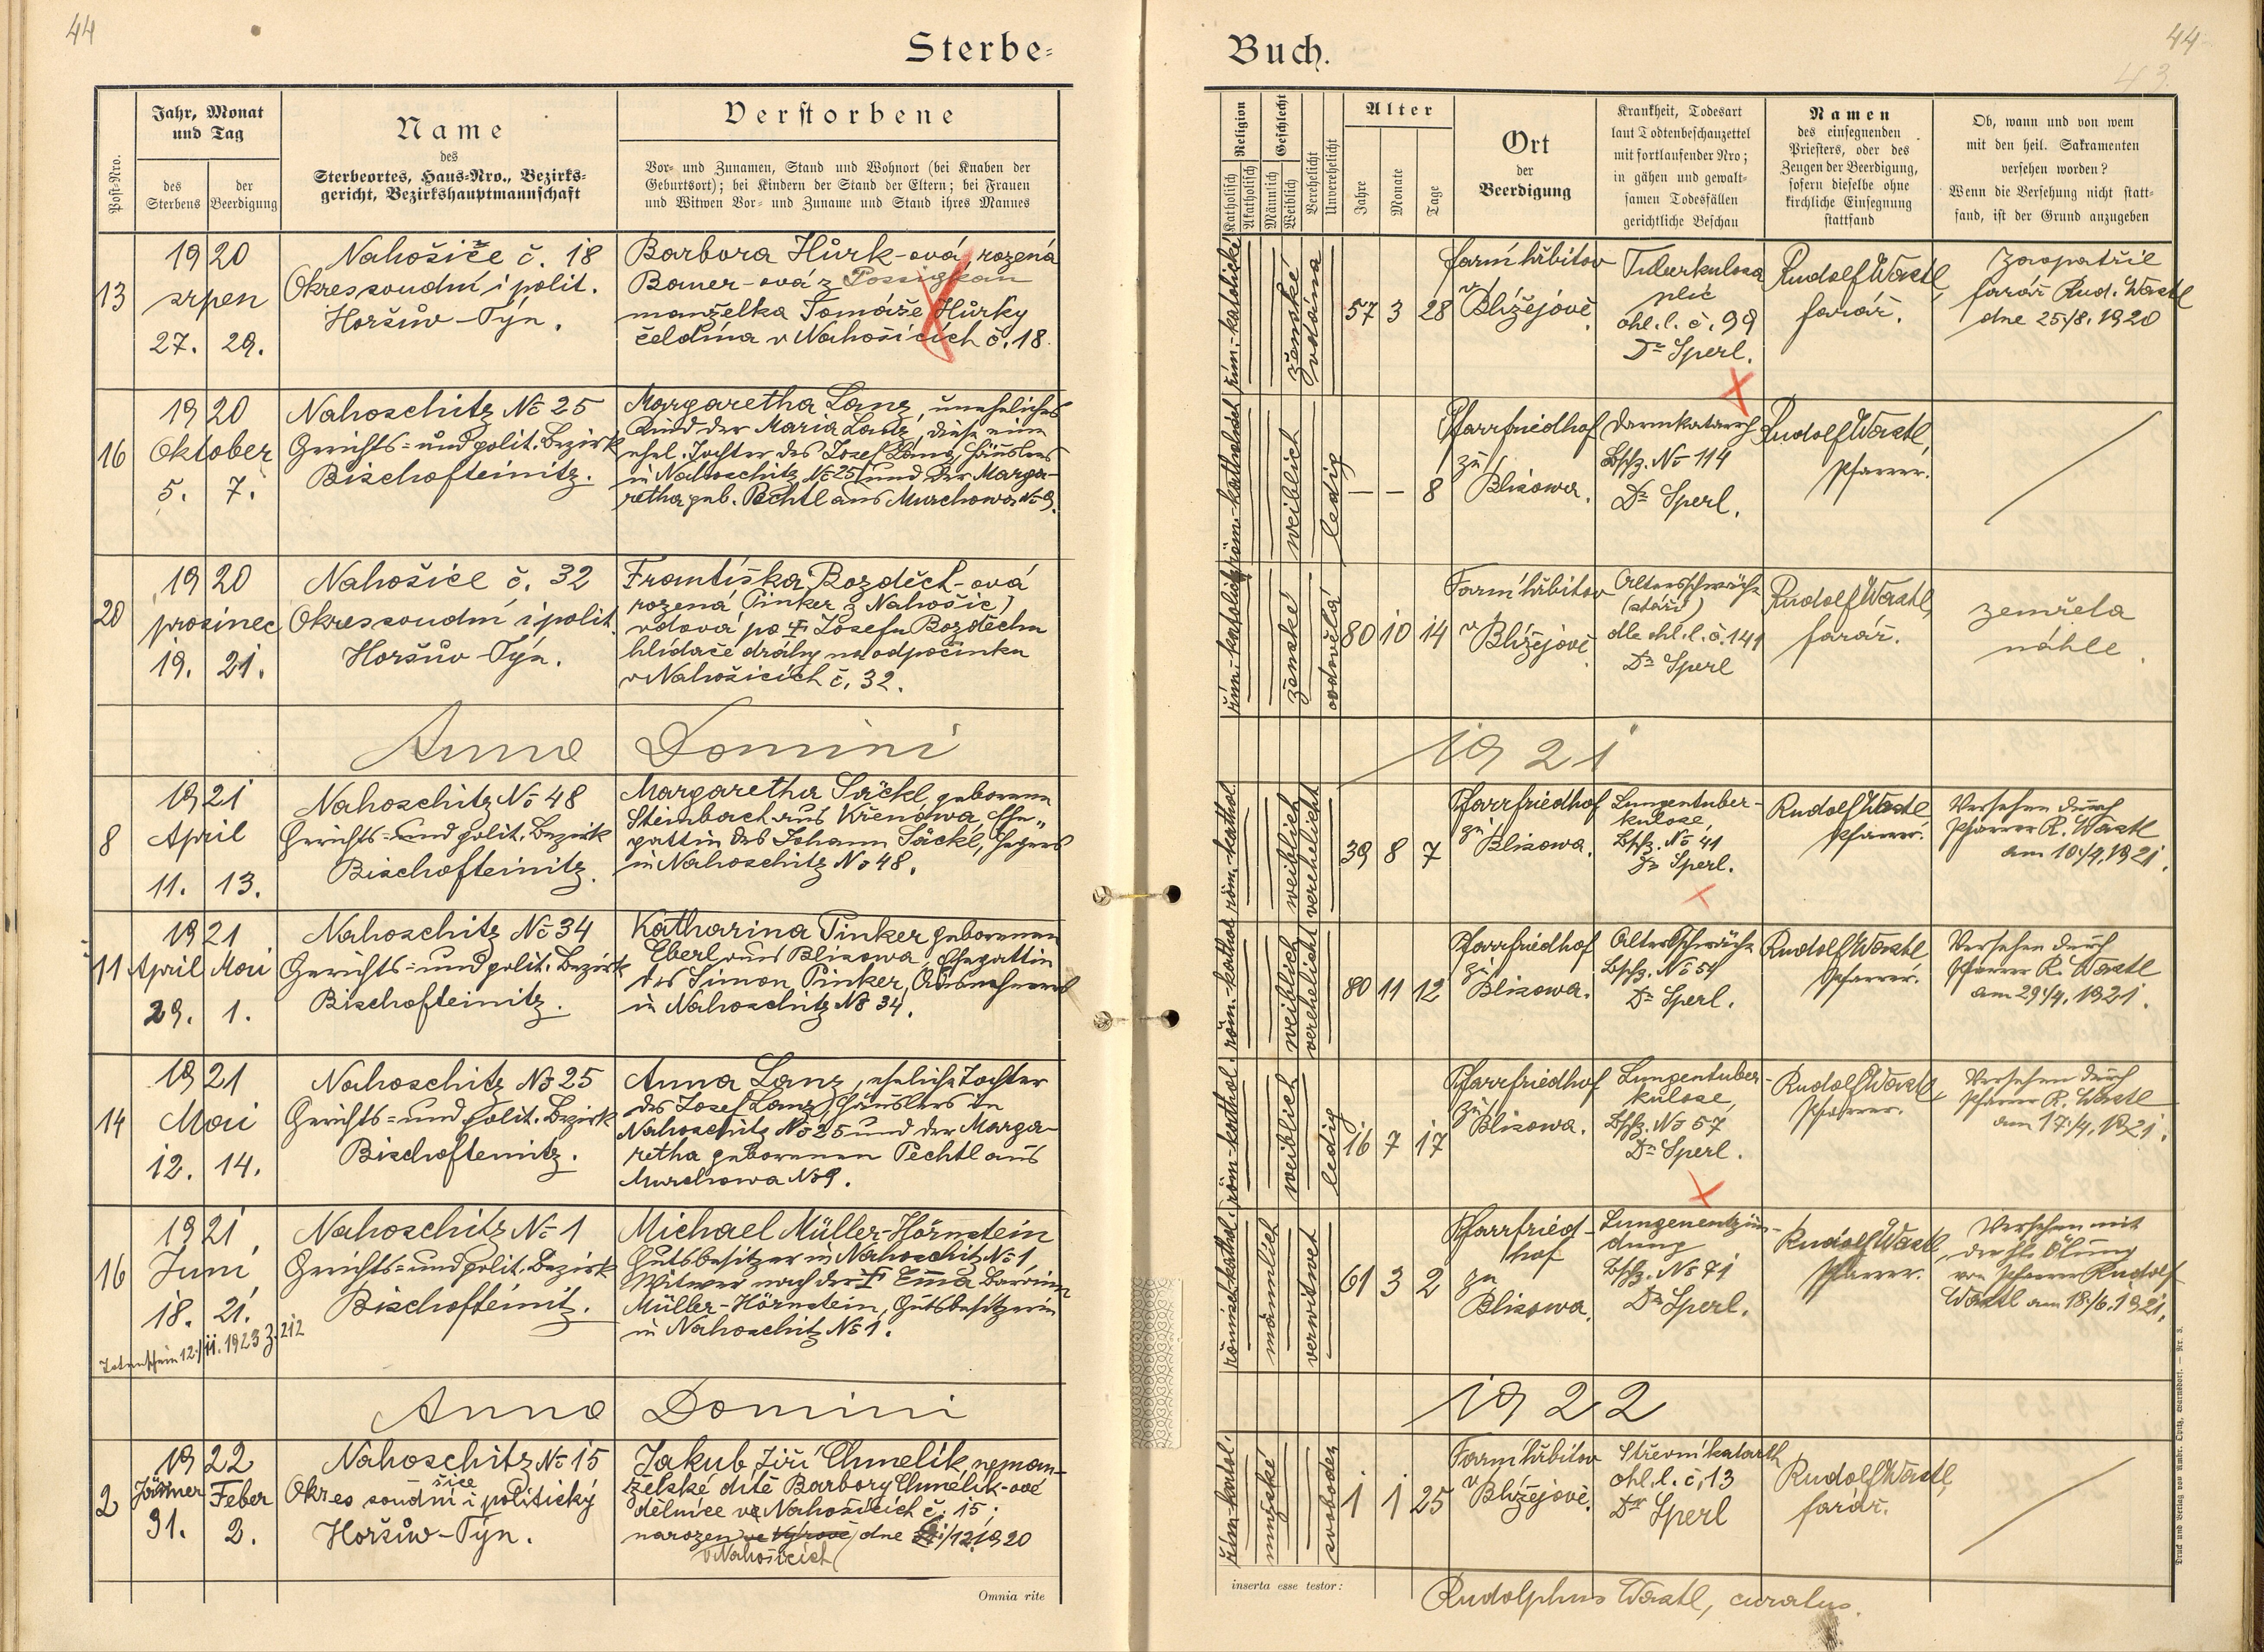 44
Sterbe-
Buch.
44
43.
Post-Nro.
Jahr, Monat
und Tag
des
Sterbens
der
Beerdigung
Name
des
Sterbeortes, Haus-Nro., Bezirks-
gericht, Bezirkshauptmannschaft
Verstorbene
Vor- und Zunamen, Stand und Wohnort (bei Knaben der
Geburtsort); bei Kindern der Stand der Eltern; bei Frauen
und Witwen Vor- und Zuname und Stand ihres Mannes
Religion
Katholisch
Akatholisch
Geschlecht
Männlich
Weiblich
Verehelicht
Unverehelicht
Alter
Jahre
Monate
Tage
Ort
der
Beerdigung
Krankheit, Todesart
laut Todtenbeschauzettel
mit fortlaufender Nro;
in gähen und gewalt-
samen Todesfällen
gerichtliche Beschau
Namen
des einsegnenden
Priesters, oder des
Zeugen der Beerdigung,
sofern dieselbe ohne
kirchliche Einsegnung
stattfand
Ob, wann und von wem
mit den heil. Sakramenten
versehen worden?
Wenn die Versehung nicht statt-
fand, ist der Grund anzugeben
13
1920
srpen
27. 29.
Nahošiče č. 18
Okres soudní i polit.
Horšův-Týn.
Barbora Hůrk-ová, rozená
Bauer-ová z Possigkau
manželka Tomáše Hůrky
čeldína v Nahošicích č. 18.
řím.-katolické
ženské
vdána
57 3 28
farní hřbitov
v
Blížejově.
Tuberkulosa
plic
ohl. l. č. 99
Dr Sperl.
Rudolf Wastl,
farář.
Zaopatřil
farář Rud. Wastl
dne 25./8. 1920
16
1920
Oktober
5. 7.
Nahoschitz No 25
Gerichts- und polit. Bezirk
Bischofteinitz.
Margaretha Lanz, uneheliches
Kind der Maria Lanz, diese eine
ehel. Tochter des Josef Lanz, Häuslers
in Nahoschitz No 25 und der Marga-
retha geb. Pechtl aus Murchowa No 9.
röm.-katholisch
weiblich
ledig
— — 8
Pfarrfriedhof
zu
Blisowa.
Darmkatarrh
Bschz. No 114
Dr Sperl.
Rudolf Wastl,
Pfarrer.
20
1920
prosinec
19. 21.
Nahošice č. 32
Okres soudní i polit.
Horšův-Týn.
Františka Bozděch-ová
rozená Pinker z Nahošic,
vdova po † Josefu Bozděchu
hlídače dráhy na odpočinku
v Nahošicích č. 32.
řím.-katolické
ženské
ovdovělá
80 10 14
Farní hřbitov
v
Blížejově
Altersschwäche
(stáří)
dle ohl. l. č. 141
Dr Sperl
Rudolf Wastl,
farář.
zemřela
náhle.
Anno Domini
1921
8
1921
April
11. 13.
Nahoschitz No 48
Gerichts- und polit. Bezirk
Bischofteinitz.
Margaretha Säckl, geborene
Steinbach aus Křenowa, Ehe-
gattin des Johann Säckl, Hegers
in Nahoschitz No 48.
röm.-kathol.
weiblich
verehelicht
39 8 7
Pfarrfriedhof
zu
Blisowa.
Lungentuber-
kulose,
Bschz. No 41
Dr Sperl.
Rudolf Wastl
Pfarrer.
Versehen durch
Pfarrer R. Wastl
am 10./4. 1921.
11
1921
April Mai
29. 1.
Nahoschitz No 34
Gerichts- und polit. Bezirk
Bischofteinitz.
Katharina Pinker geborenen
Eberl aus Blisowa, Ehegattin
des Simon Pinker, Ausnehmers
in Nahoschitz No 34.
röm.-kathol.
weiblich
verehelicht
80 11 12
Pfarrfriedhof
zu
Blisowa.
Altersschwäche
Bschz. No 54
Dr Sperl.
Rudolf Wastl
Pfarrer.
Versehen durch
Pfarrer R. Wastl
am 29./4. 1921.
14
1921
Mai
12. 14.
Nahoschitz No 25
Gerichts- und polit. Bezirk
Bischofteinitz.
Anna Lanz, eheliche Tochter
des Josef Lanz, Häuslers in
Nahoschitz No 25 und der Marga-
retha geborenen Pechtl aus
Murchowa No 9.
röm-kathol.
weiblich
ledig
16 7 17
Pfarrfriedhof
zu
Blisowa.
Lungentuber-
kulose,
Bschz. No 57
Dr Sperl.
Rudolf Wastl,
Pfarrer.
Versehen durch
Pfarrer R. Wastl
am 17./4. 1921.
16
1921
Juni
18. 21.
Totenschein 12./11. 1923 Z. 212
Nahoschitz No 1
Gerichts- und polit. Bezirk
Bischofteinitz.
Michael Müller-Hörnstein
Gutsbesitzer in Nahoschitz No 1,
Witwer nach der † Emma Baronin
Müller-Hörnstein, Gutsbesitzerin
in Nahoschitz No 1.
römisch-kathol.
männlich
verwitwet
61 3 2
Pfarrfried-
hof
zu
Blisowa.
Lungenentzün-
dung
Bschz. No 71
Dr Sperl.
Rudolf Wastl,
Pfarrer.
Versehen mit
der hl. Ölung
von Pfarrer Rudolf
Wastl am 18./6. 1921.
Anno Domini
1922
2
1922
Jänner Feber
31. 2.
Nahoschitz No 15
šice
Okres soudní i politický
Horšův-Týn.
Jakub Jiří Chmelík, neman-
želské dítě Barbory Chmelík-ové
dělnice ve Nahošicích č. 15;
narozen ve Výrově, dne /12. 1920
v Nahošicích
řím-katol.
mužské
svoboden
1 1 25
Farní hřbitov
v
Blížejově.
Střevní katarrh
ohl. l. č. 13
Dr Sperl
Rudolf Wastl,
farář.
Omnia rite
inserta esse testor:
Rudolphus Wastl, curatus.
Druck und Verlag von Ambr. Opitz, Warnsdorf. — Nr. 3.